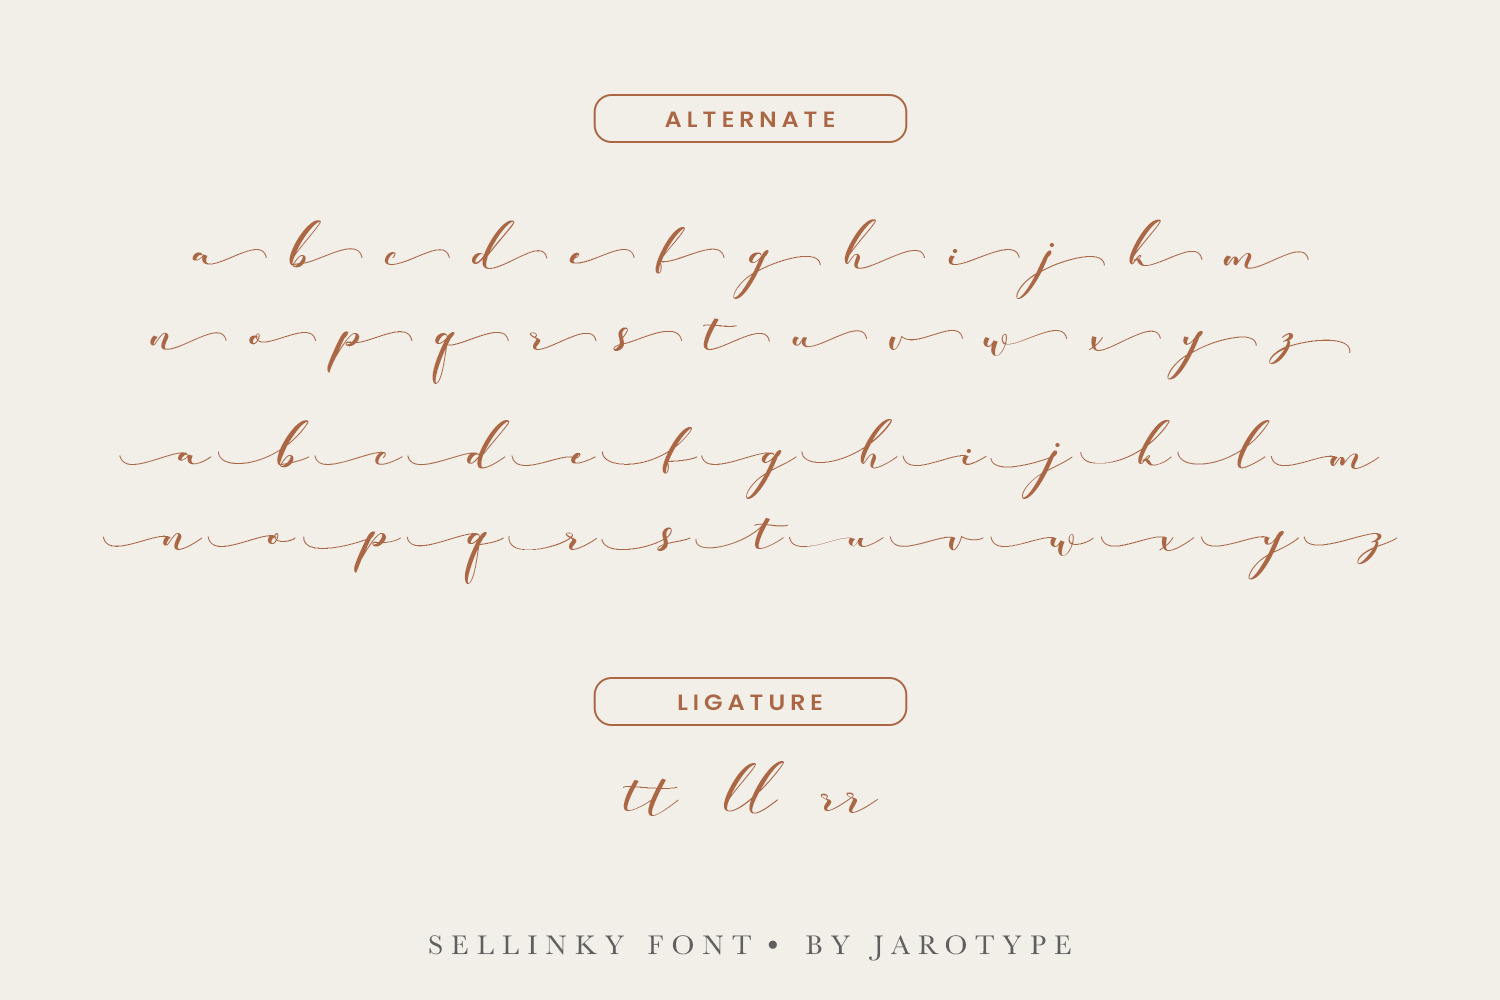 ALTERNATE
a b c d e f g h i j k m
n o p q r s t u v w x y z
a b c d e f g h i j k l m
n o p q r s t u v w x y z
LIGATURE
tt ll rr
SELLINKY FONT • BY JAROTYPE